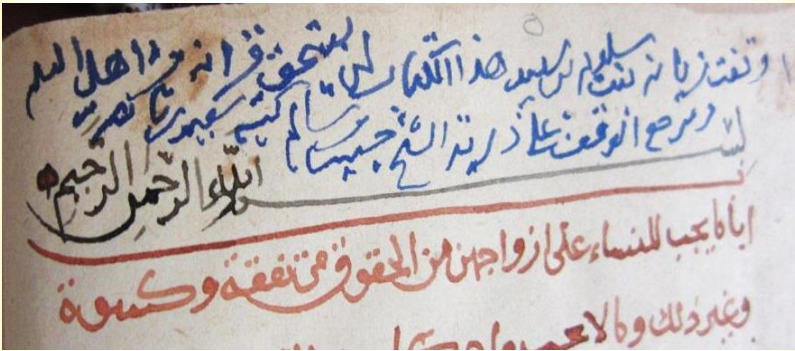 اوقفت بنت بن سعيد هذا الكتاب لمن يستحق قرائه من اهل العلم
ومرجع الوقف على ذرية الشيخ بن سالم كتبه سعيد بن ناصر
بسم الله الرحمن الرحيم
باب ما يجب للنساء على ازواجهن من الحقوق من نفقة وكسوة
وغير ذلك وما لا يجب